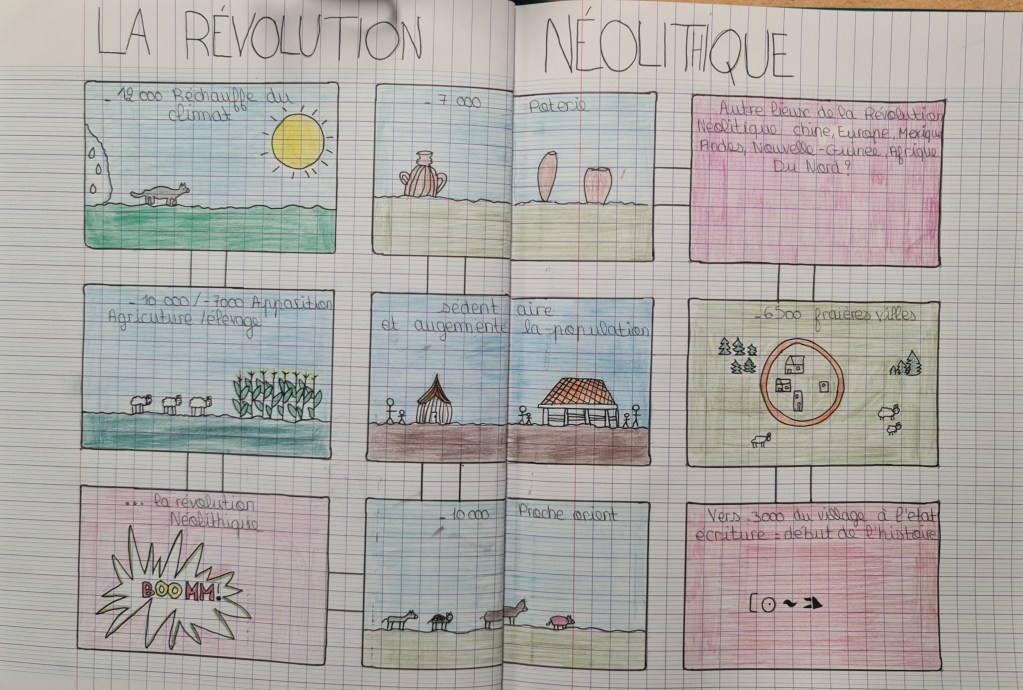 LA RÉVOLUTION NÉOLITHIQUE
- 12 000 Réchauffe du
climat
- 10 000 / - 7000 Apparition
Agricuture / élevage
... la révolution
Néolithique
BOOMM!
- 10 000 Proche orient
sédent aire
et augemente la population
- 7 000 Poterie
Autre lieux de la Révolution
Néolitique chine, Europe, Mexique
Andes, Nouvelle-Guinée, Afrique
Du Nord ?
- 6500 fraières villes
Vers -3000 du village à l'état
écriture = début de l'histoire